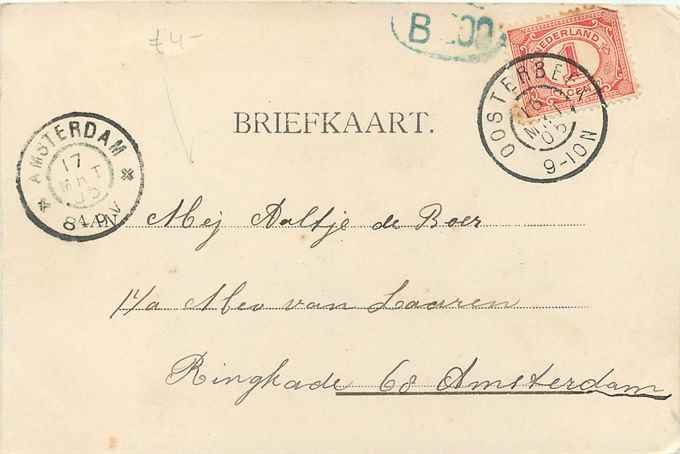 £4-
B 200
NEDERLAND
1
OOSTERBEEK
16
MRT
05
9-10N
BRIEFKAART.
AMSTERDAM
17
MRT
05
Mej Aaltje de Boer
p/a Mev van Laaren
Ringkade 68 Amsterdam